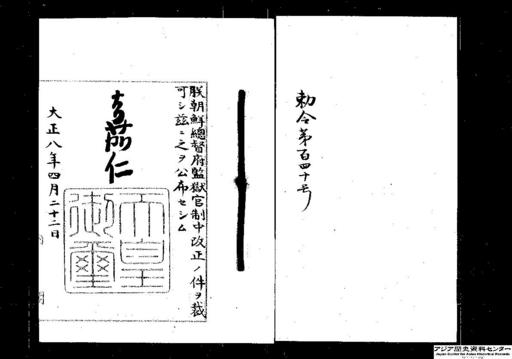 勅令第百四十号
朕朝鮮總督府監獄官制中改正ノ件ヲ裁
可シ茲ニ之ヲ公布セシム
嘉仁
天皇
御璽
大正八年四月二十二日
アジア歴史資料センター
Japan Center for Asian Historical Records